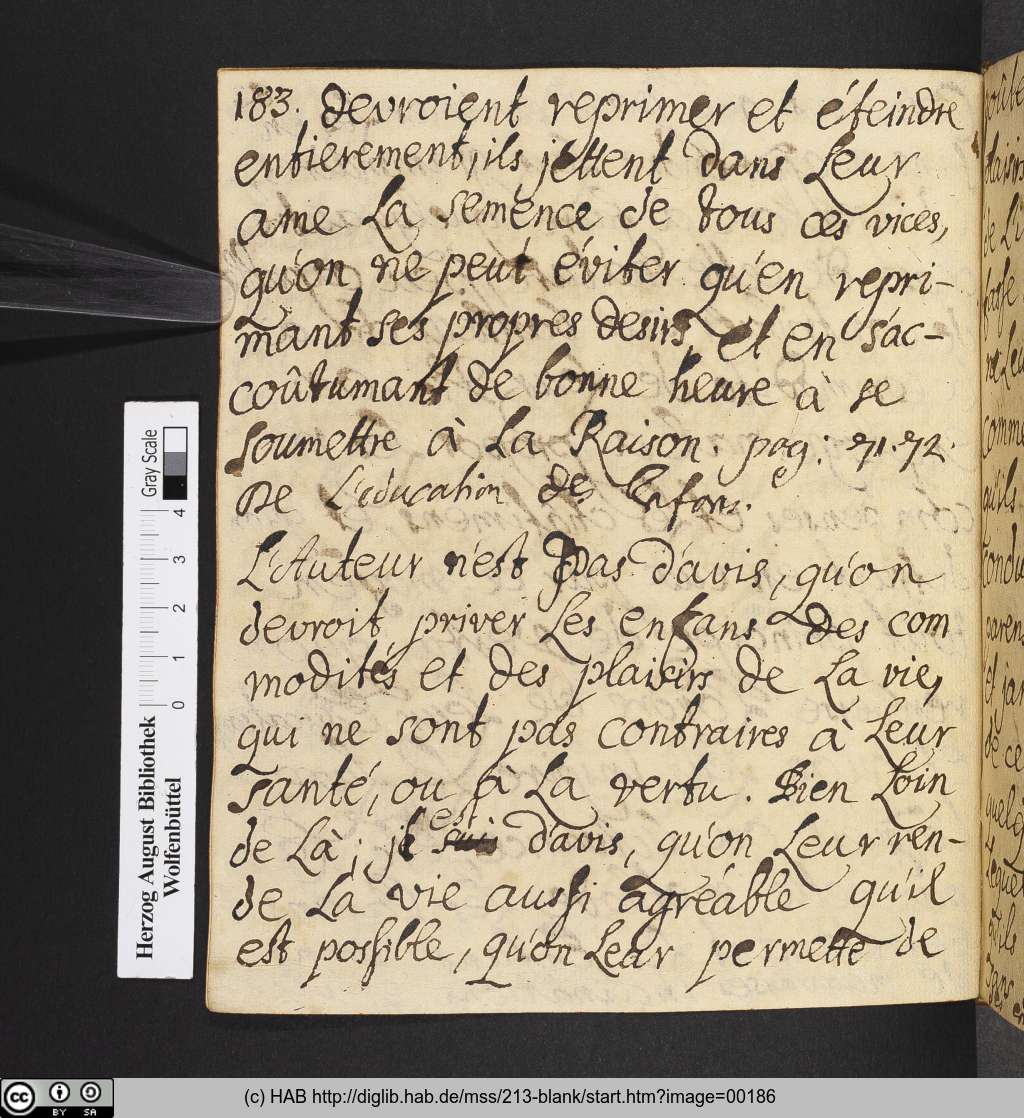 183. devroient reprimer et éteindre
entierement, ils jettent dans Leur
ame La semence de tous ces vices,
qu'on ne peut éviter qu'en repri-
mant ses propres desirs, et en s'ac-
coûtumant de bonne heure à se
soumettre à La Raison. pag: 71.72.
De L'education des Enfans.
L'Auteur n'est pas d'avis, qu'on
devroit priver Les enfans des com
modités et des plaisirs de La vie,
qui ne sont pas contraires à Leur
santé, ou à La vertu. Bien Loin
de Là; il est d'avis, qu'on Leur ren-
de La vie aussi agréable qu'il
est possible, qu'on Leur permette de
Herzog August Bibliothek
Wolfenbüttel
Gray Scale
0 1 2 3 4
comme
qu'ils
condu
et jan
de ce
(c) HAB http://diglib.hab.de/mss/213-blank/start.htm?image=00186
cc BY SA